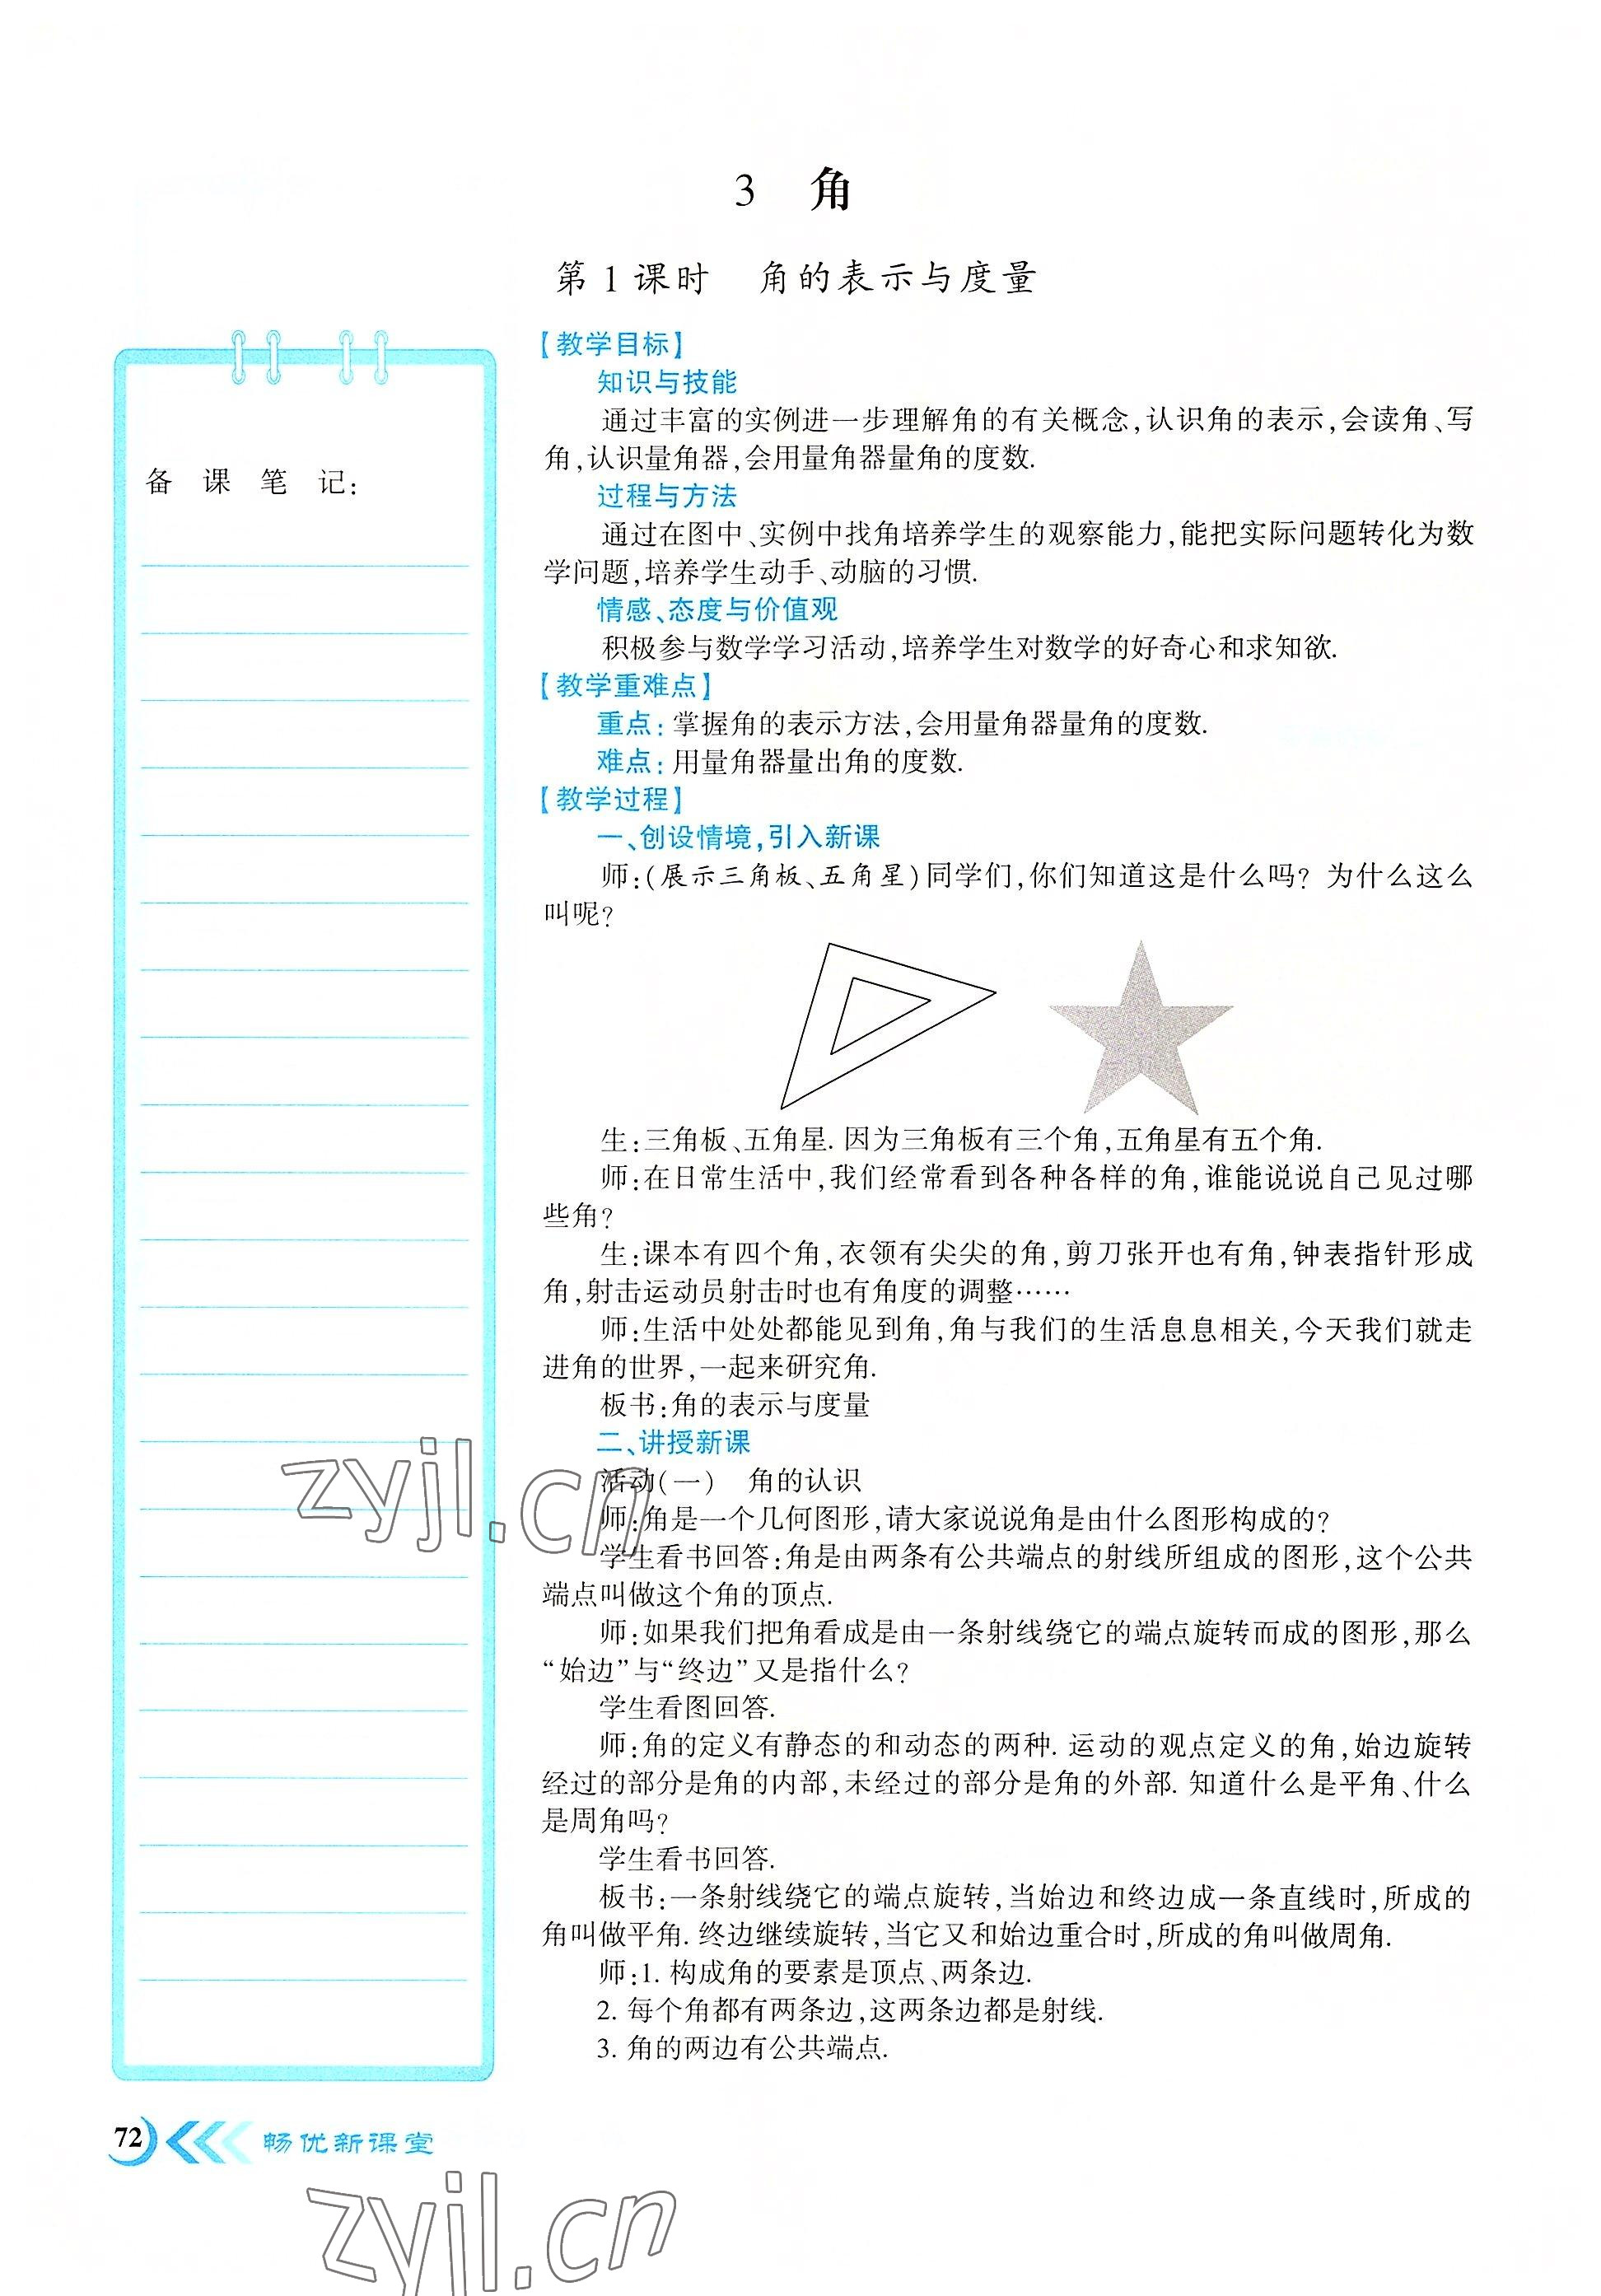 3 角
第 1 课时 角的表示与度量
备 课 笔 记:
【教学目标】
知识与技能
通过丰富的实例进一步理解角的有关概念,认识角的表示,会读角、写
角,认识量角器,会用量角器量角的度数.
过程与方法
通过在图中、实例中找角培养学生的观察能力,能把实际问题转化为数
学问题,培养学生动手、动脑的习惯.
情感、态度与价值观
积极参与数学学习活动,培养学生对数学的好奇心和求知欲.
【教学重难点】
重点:掌握角的表示方法,会用量角器量角的度数.
难点:用量角器量出角的度数.
【教学过程】
一、创设情境,引入新课
师:(展示三角板、五角星)同学们,你们知道这是什么吗? 为什么这么
叫呢?
生:三角板、五角星. 因为三角板有三个角,五角星有五个角.
师:在日常生活中,我们经常看到各种各样的角,谁能说说自己见过哪
些角?
生:课本有四个角,衣领有尖尖的角,剪刀张开也有角,钟表指针形成
角,射击运动员射击时也有角度的调整……
师:生活中处处都能见到角,角与我们的生活息息相关,今天我们就走
进角的世界,一起来研究角.
板书:角的表示与度量
二、讲授新课
活动(一) 角的认识
师:角是一个几何图形,请大家说说角是由什么图形构成的?
学生看书回答:角是由两条有公共端点的射线所组成的图形,这个公共
端点叫做这个角的顶点.
师:如果我们把角看成是由一条射线绕它的端点旋转而成的图形,那么
“始边”与“终边”又是指什么?
学生看图回答.
师:角的定义有静态的和动态的两种. 运动的观点定义的角,始边旋转
经过的部分是角的内部,未经过的部分是角的外部. 知道什么是平角、什么
是周角吗?
学生看书回答.
板书:一条射线绕它的端点旋转,当始边和终边成一条直线时,所成的
角叫做平角. 终边继续旋转,当它又和始边重合时,所成的角叫做周角.
师:1. 构成角的要素是顶点、两条边.
2. 每个角都有两条边,这两条边都是射线.
3. 角的两边有公共端点.
zyjl.cn
72 畅优新课堂
zyjl.cn